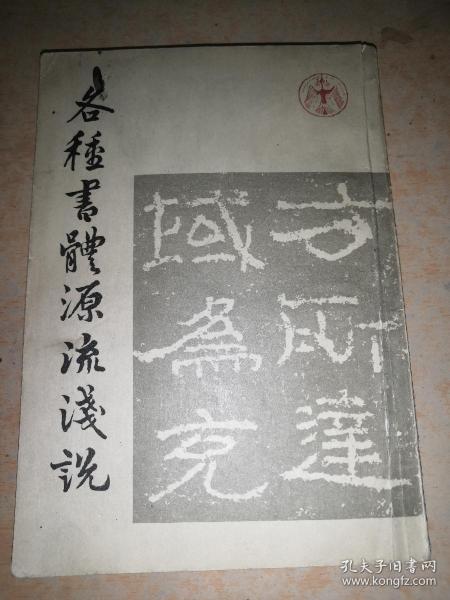 各種書體源流淺説
方所達
域為克
孔夫子旧书网
www.kongfz.com